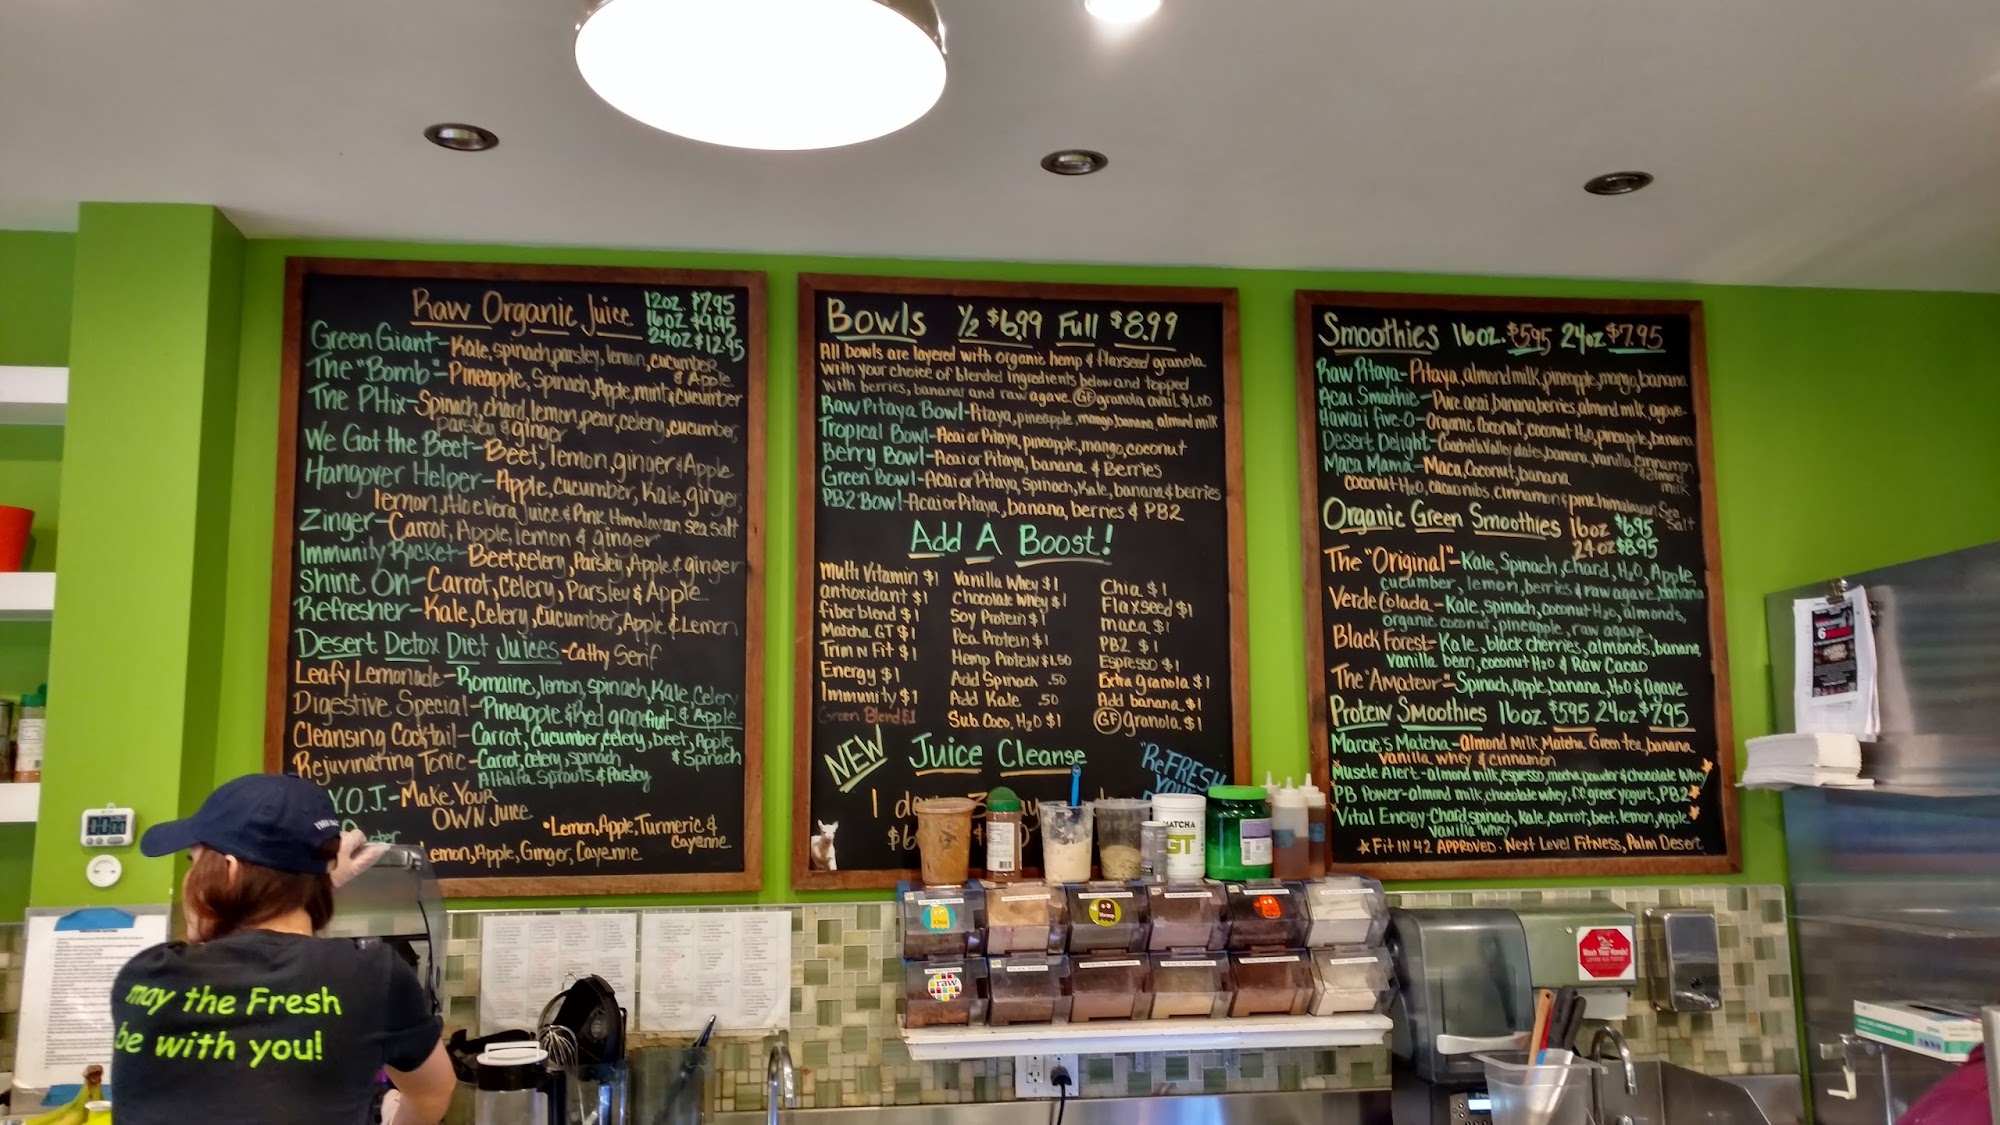 Raw Organic Juice 12oz. $7.95
16oz $9.95
24oz $12.95
Green Giant-Kale, spinach, parsley, lemon, cucumber
& Apple
The "Bomb"-Pineapple, Spinach, Apple, mint & cucumber
The PHix-Spinach, chard, lemon, pear, celery, cucumber,
parsley & ginger
We Got the Beet-Beet, lemon, ginger & Apple
Hangover Helper-Apple, cucumber, Kale, ginger,
lemon, Aloe Vera juice & Pink Himalayan sea salt
Zinger-Carrot, Apple, lemon & ginger
Immunity Rocket-Beet, celery, Parsley, Apple & ginger
Shine On-Carrot, Celery, Parsley & Apple
Refresher-Kale, Celery, Cucumber, Apple & Lemon
Desert Detox Diet Juices-Cathy Serif
Leafy Lemonade-Romaine, lemon, spinach, Kale, Celery
& Apple
Digestive Special-Pineapple & Red grapefruit
Cleansing Cocktail-Carrot, Cucumber, celery, beet, Apple
& Spinach
Rejuvinating Tonic-Carrot, celery, spinach
Alfalfa Sprouts & Parsley
Y.O.J.-Make Your
OWN Juice
•Lemon, Apple, Turmeric &
Cayenne
Lemon, Apple, Ginger, Cayenne
Bowls ½ $6.99 Full $8.99
All bowls are layered with organic hemp & flaxseed granola
with your choice of blended ingredients below and topped
with berries, banana and raw agave. GF granola avail. $1.00
Raw Pitaya Bowl-Pitaya, pineapple, mango, banana, almond milk
Tropical Bowl-Acai or Pitaya, pineapple, mango, coconut
Berry Bowl-Acai or Pitaya, banana & Berries
Green Bowl-Acai or Pitaya, spinach, Kale, banana & berries
PB2 Bowl-Acai or Pitaya, banana, berries & PB2
Add A Boost!
Multi Vitamin $1
antioxidant $1
fiber blend $1
Matcha GT $1
Trim N Fit $1
Energy $1
Immunity $1
Green Blend $1
Vanilla Whey $1
Chocolate Whey $1
Soy Protein $1
Pea Protein $1
Hemp Protein $1.50
Add Spinach .50
Add Kale .50
Sub Coco. H2O $1
Chia $1
Flaxseed $1
maca $1
PB2 $1
Espresso $1
Extra Granola $1
Add banana $1
GF granola $1
NEW Juice Cleanse
"ReFRESH
YOUR
Smoothies 16oz. $5.95 24oz $7.95
Raw Pitaya-Pitaya, almond milk, pineapple, mango, banana
Acai Smoothie-Pure acai, banana, berries, almond milk, agave
Hawaii Five-O-Organic Coconut, coconut H2O, pineapple, banana
Desert Delight-Coachella Valley dates, banana, vanilla, cinnamon
& almond
milk
Maca Mama-Maca, Coconut, banana
coconut H2O, cacao nibs, cinnamon & pink himalayan Sea
Salt
Organic Green Smoothies 16oz $6.95
24oz $8.95
The "Original"-Kale, Spinach, chard, H2O, Apple,
cucumber, lemon, berries & raw agave, banana
Verde Colada-Kale, spinach, coconut H2O, almonds,
organic coconut, pineapple, raw agave
Black Forest-Kale, black cherries, almonds, banana,
vanilla bean, coconut H2O & Raw Cacao
The "Amateur"-Spinach, apple, banana, H2O & agave
Protein Smoothies 16oz. $5.95 24oz $7.95
Marcie's Matcha-almond Milk, Matcha Green tea, banana
vanilla whey & cinnamon
Muscle Alert-almond milk, espresso, mocha powder & chocolate Whey
PB Power-almond milk, chocolate whey, greek yogurt, PB2
Vital Energy-Chard, spinach, Kale, carrot, beet, lemon, Apple
vanilla whey
Fit IN 42 APPROVED. Next Level Fitness, Palm Desert
may the Fresh
be with you!
MATCHA
GT
Chia
Hemp
raw
Wash Your Hands!